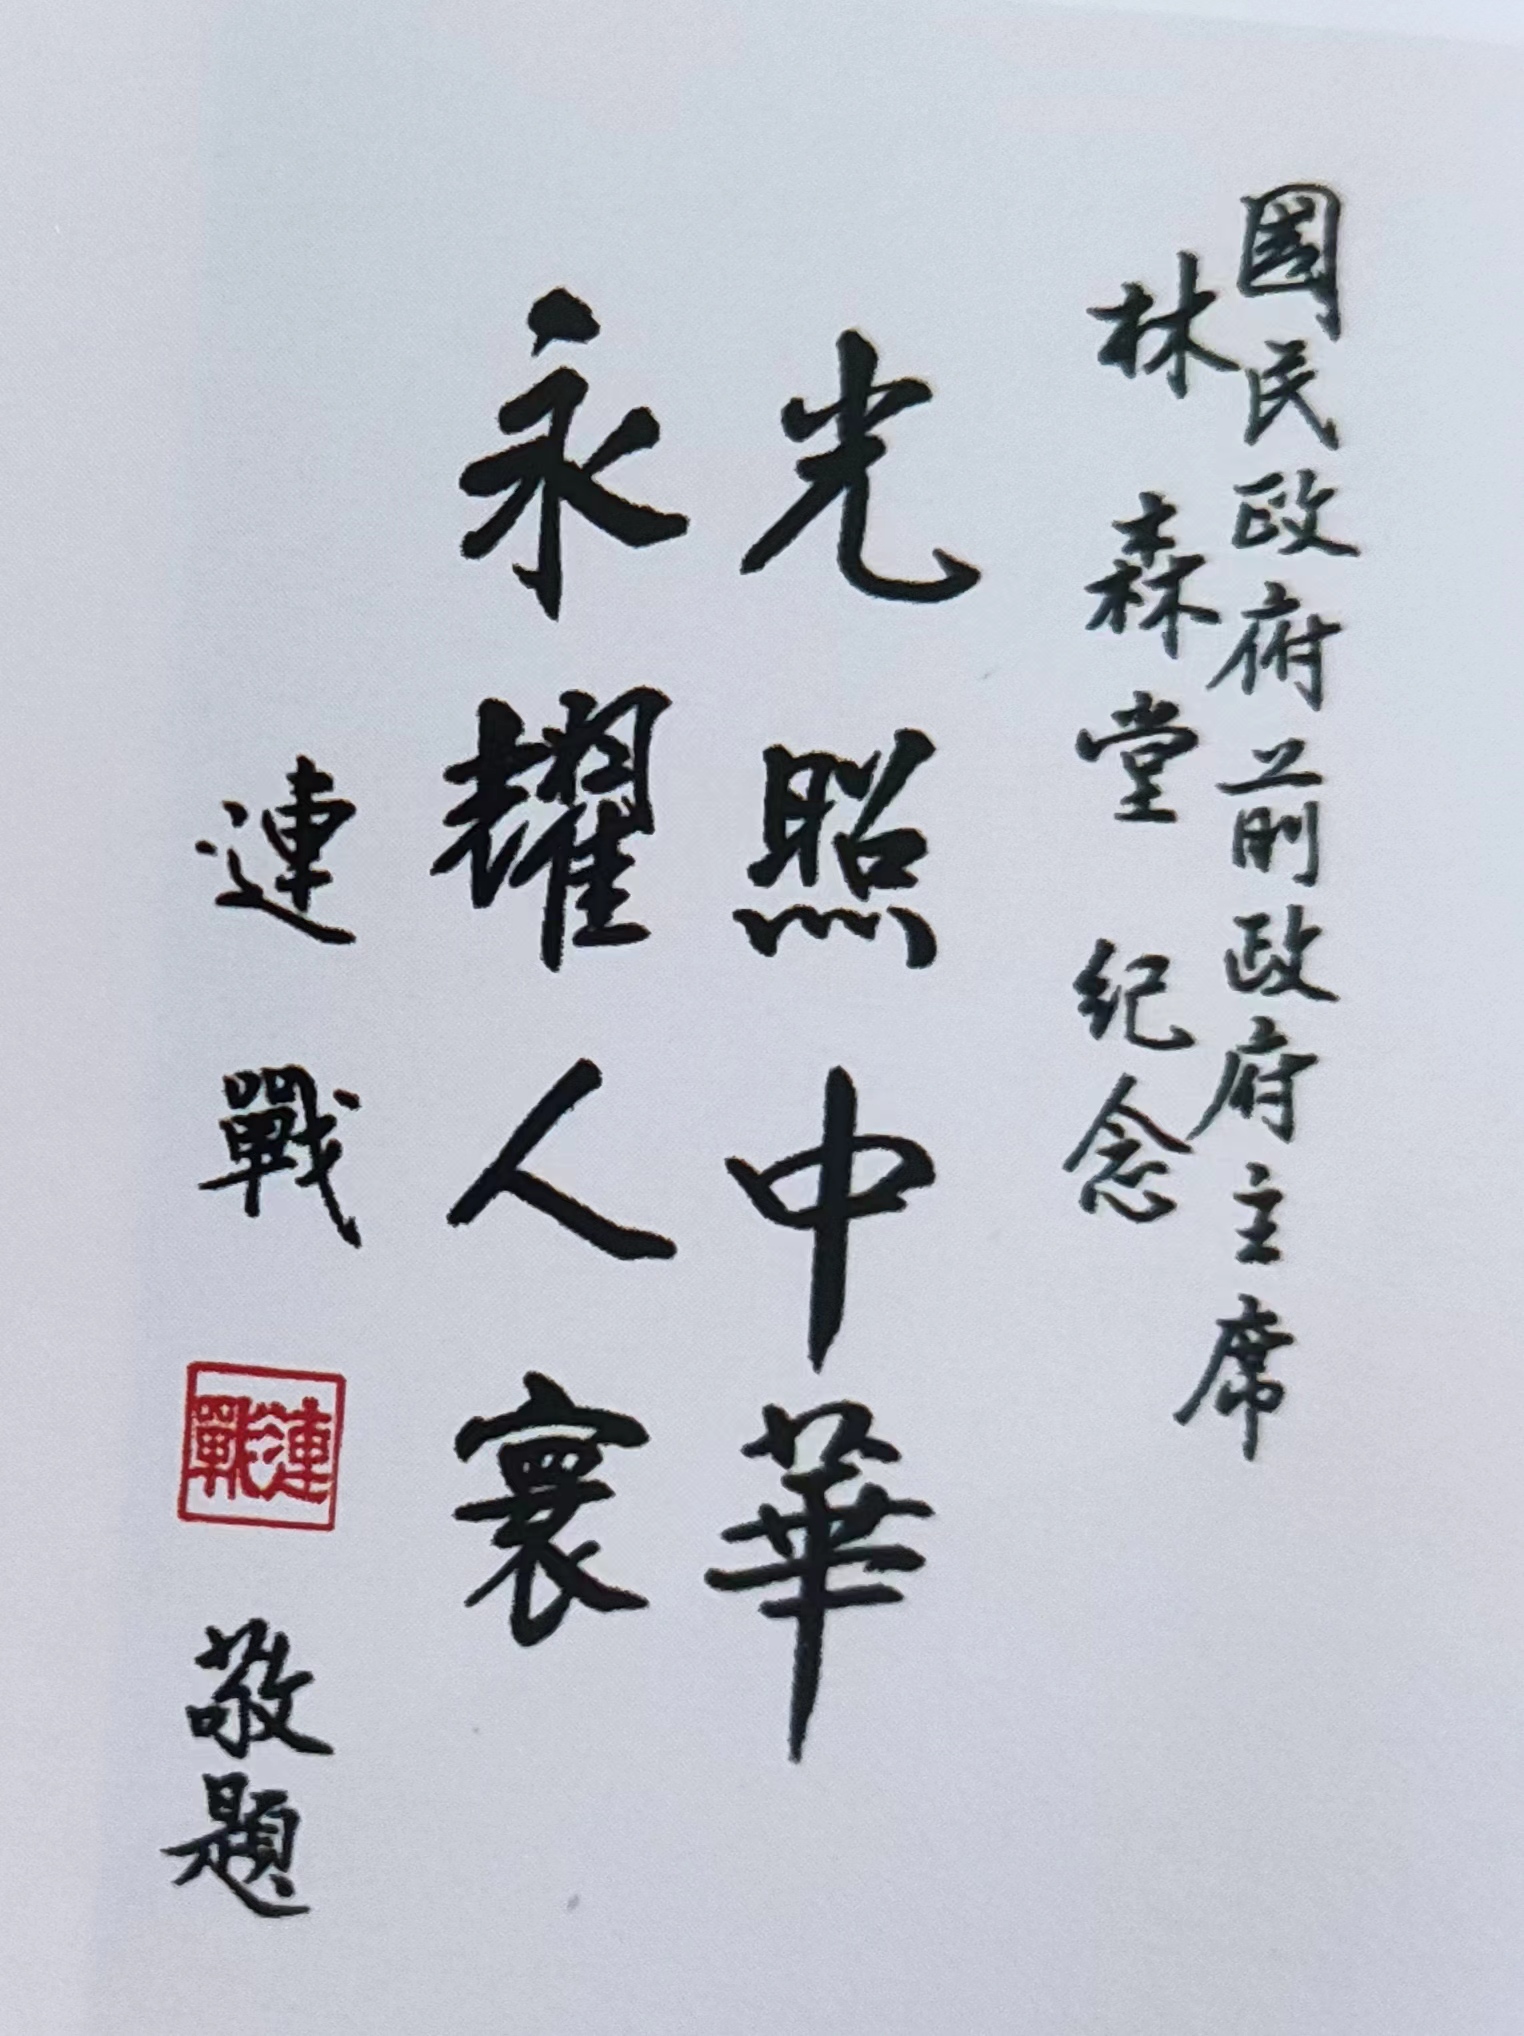 國民政府前政府主席
林森堂 紀念
光照中華
永耀人寰
連戰
連戰
敬題